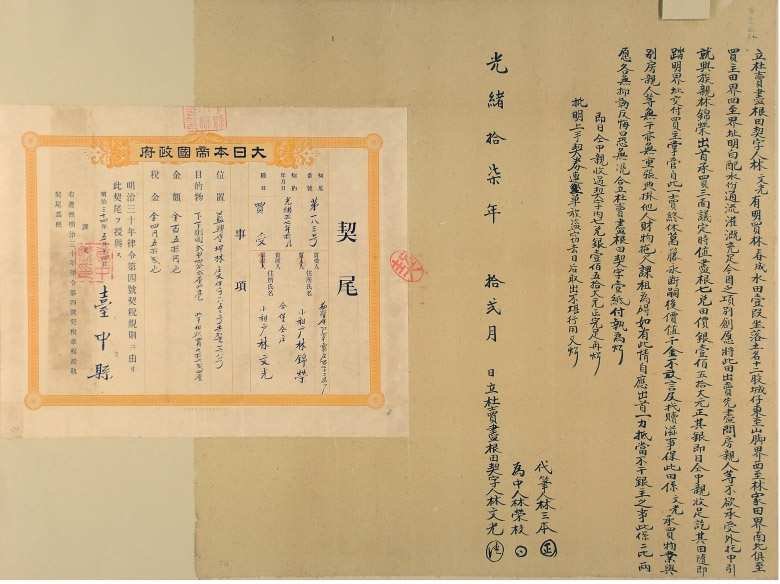 立杜賣盡根田契字人林文光有明買林春成水田壹段坐落土名十二股城仔東至山脚界西至林家田界南北俱至
買主田界四至界址明白配水份通流灌溉充足今因乏項別創愿將此田出賣先盡問房親人等不欲承受外托中引
就與族親林錦榮出首承買三面議定時值盡根七兌田價銀壹佰五拾大元正其銀即日仝中親收足訖其田隨即
踏明界址交付買主掌管自此一賣終休葛藤永斷嗣後價值千金不敢言及找贖滋事保此田係文光承買物業與
別房親人等無干亦無重張典掛他人財物拖欠課租為碍如有此情自應出首一力抵當不干銀主之事此係二比兩
愿各無抑勒反悔口恐無憑合立杜賣盡根田契字壹紙付執為炤
即日仝中親收過契字內七兌銀壹佰五拾大元正完足再炤
批明上手契券連單被盜竊去日后取出不堪行用又炤
光緒拾柒年 拾弍月 日立杜賣盡根田契字人林文光
代筆人林三本
為中人林榮枝
大日本帝國政府
契尾
事項
契尾番號 第一八三号
契約年月日 光緒十七年十二月
種目 買受
買受人住所氏名
小租戶林錦榮
賣渡人住所氏名
小租戶林文光
位置
目的物
金額 金百五拾円也
稅金 金四円五拾錢也
明治三十年律令第四號契稅規則ニ由リ
此契尾ヲ授與ス
明治三十四年五月 日
臺中縣
右遵照明治三十年律令第四號契稅章程給執
契尾為據